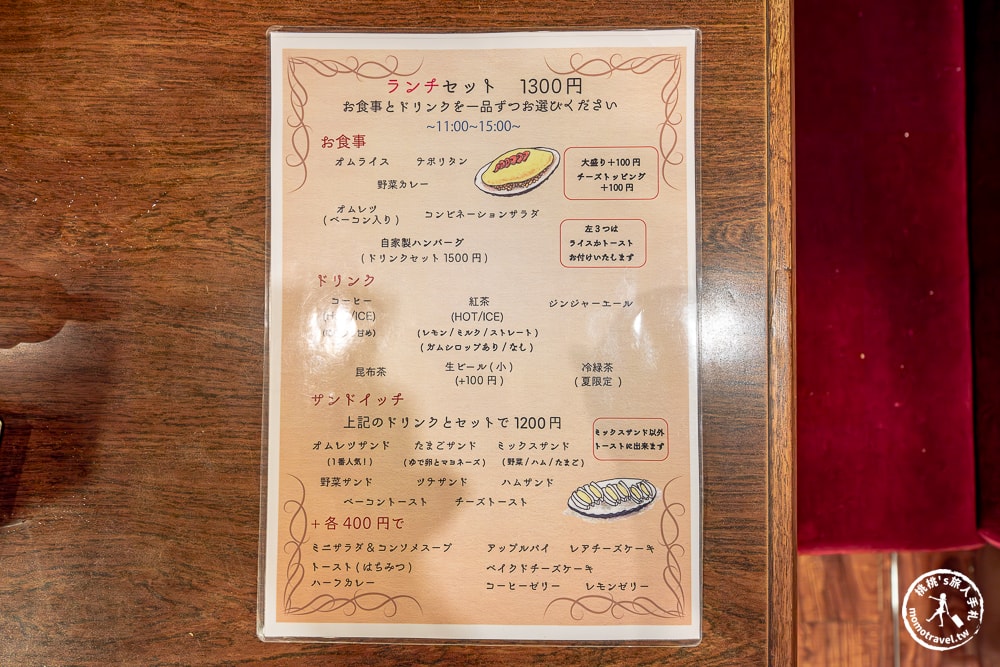 ランチセット 1300円
お食事とドリンクを一品ずつお選びください
~11:00~15:00~
お食事
オムライス ナポリタン
野菜カレー
大盛り+100円
チーズトッピング
+100円
オムレツ
(ベーコン入り)
コンビネーションサラダ
自家製ハンバーグ
(ドリンクセット1500円)
左3つは
ライスかトースト
お付けいたします
ドリンク
コーヒー
(HOT/ICE)
甘め)
紅茶
(HOT/ICE)
(レモン/ミルク/ストレート)
(ガムシロップあり/なし)
ジンジャーエール
昆布茶
生ビール(小)
(+100円)
冷緑茶
(夏限定)
サンドイッチ
上記のドリンクとセットで1200円
ミックスサンド以外
トーストに出来ます
オムレツサンド たまごサンド ミックスサンド
(1番人気!) (ゆで卵とマヨネーズ) (野菜/ハム/たまご)
野菜サンド ツナサンド ハムサンド
ベーコントースト チーズトースト
+各400円で
ミニサラダ&コンソメスープ
トースト(はちみつ)
ハーフカレー
アップルパイ レアチーズケーキ
ベイクドチーズケーキ
コーヒーゼリー レモンゼリー
桃桃's旅人手札
momotravel.tw